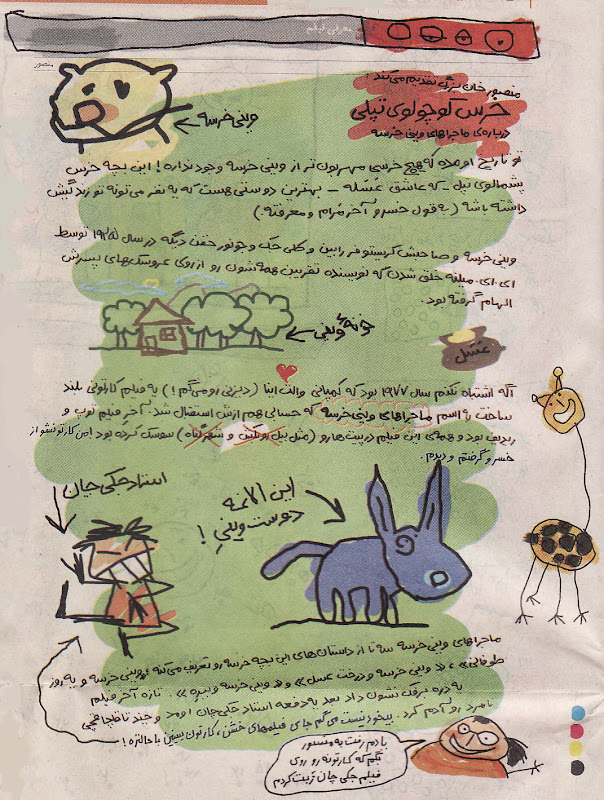 معرفی فیلم
منصور
منصور خان بزرگ تقدیم می‌کند:
خرس کوچولوی تپلی
درباره‌ی ماجراهای وینی خرسه
وینی خرسه
تو تاریخ اومده که هیچ خرسی مهربون‌تر از وینی خرسه وجود نداره! این بچه خرس
پشمالوی تپل - که عاشق عسله - بهترین دوستی هست که یه نفر می‌تونه تو زندگیش
داشته باشه (به قول خسرو آخر مرام و معرفته.)
وینی خرسه و صاحبش کریستوفر رابین و کلی جک و جونور خفن دیگه در سال ۱۹۲۵ توسط
ای.ای. میلنه خلق شدن که نویسنده تقریبن همه‌شون رو از روی عروسک‌های پسرش
الهام گرفته بود.
خونه‌ی وینی
عسل
اگه اشتباه نکنم سال ۱۹۷۷ بود که کمپانی والت اینا (دیزنی رو می‌گم!) یه فیلم کارتونی بلند
ساخت به اسم ماجراهای وینی خرسه که حسابی هم ازش استقبال شد. آخر فیلم توپ و
ردیف بود و همه‌ی این فیلم درپیت‌ها رو (مثل بیل رو بکش و شهر گناه) سوسک کرده بود. من کارتونشو از
خسرو گرفتم و دیدم.
استاد جکی جان
این الاغه
دوست وینی!
ماجراهای وینی خرسه سه تا از داستان‌های این بچه خرسه رو تعریف می‌کنه، «وینی خرسه و یه روز
طوفانی»، «وینی خرسه و درخت عسل» و «وینی خرسه و ببره». تازه آخر فیلم
یه دفعه استاد جکی جان اومد و چند تا قلچماق
نامرد رو آدم کرد. بیخود نیست می‌گم جای فیلم‌های خشن، کارتون ببینین باحالتره!
یادم رفت به منصور
بگم که کارتونه رو روی
فیلم جکی چان رایت کردم